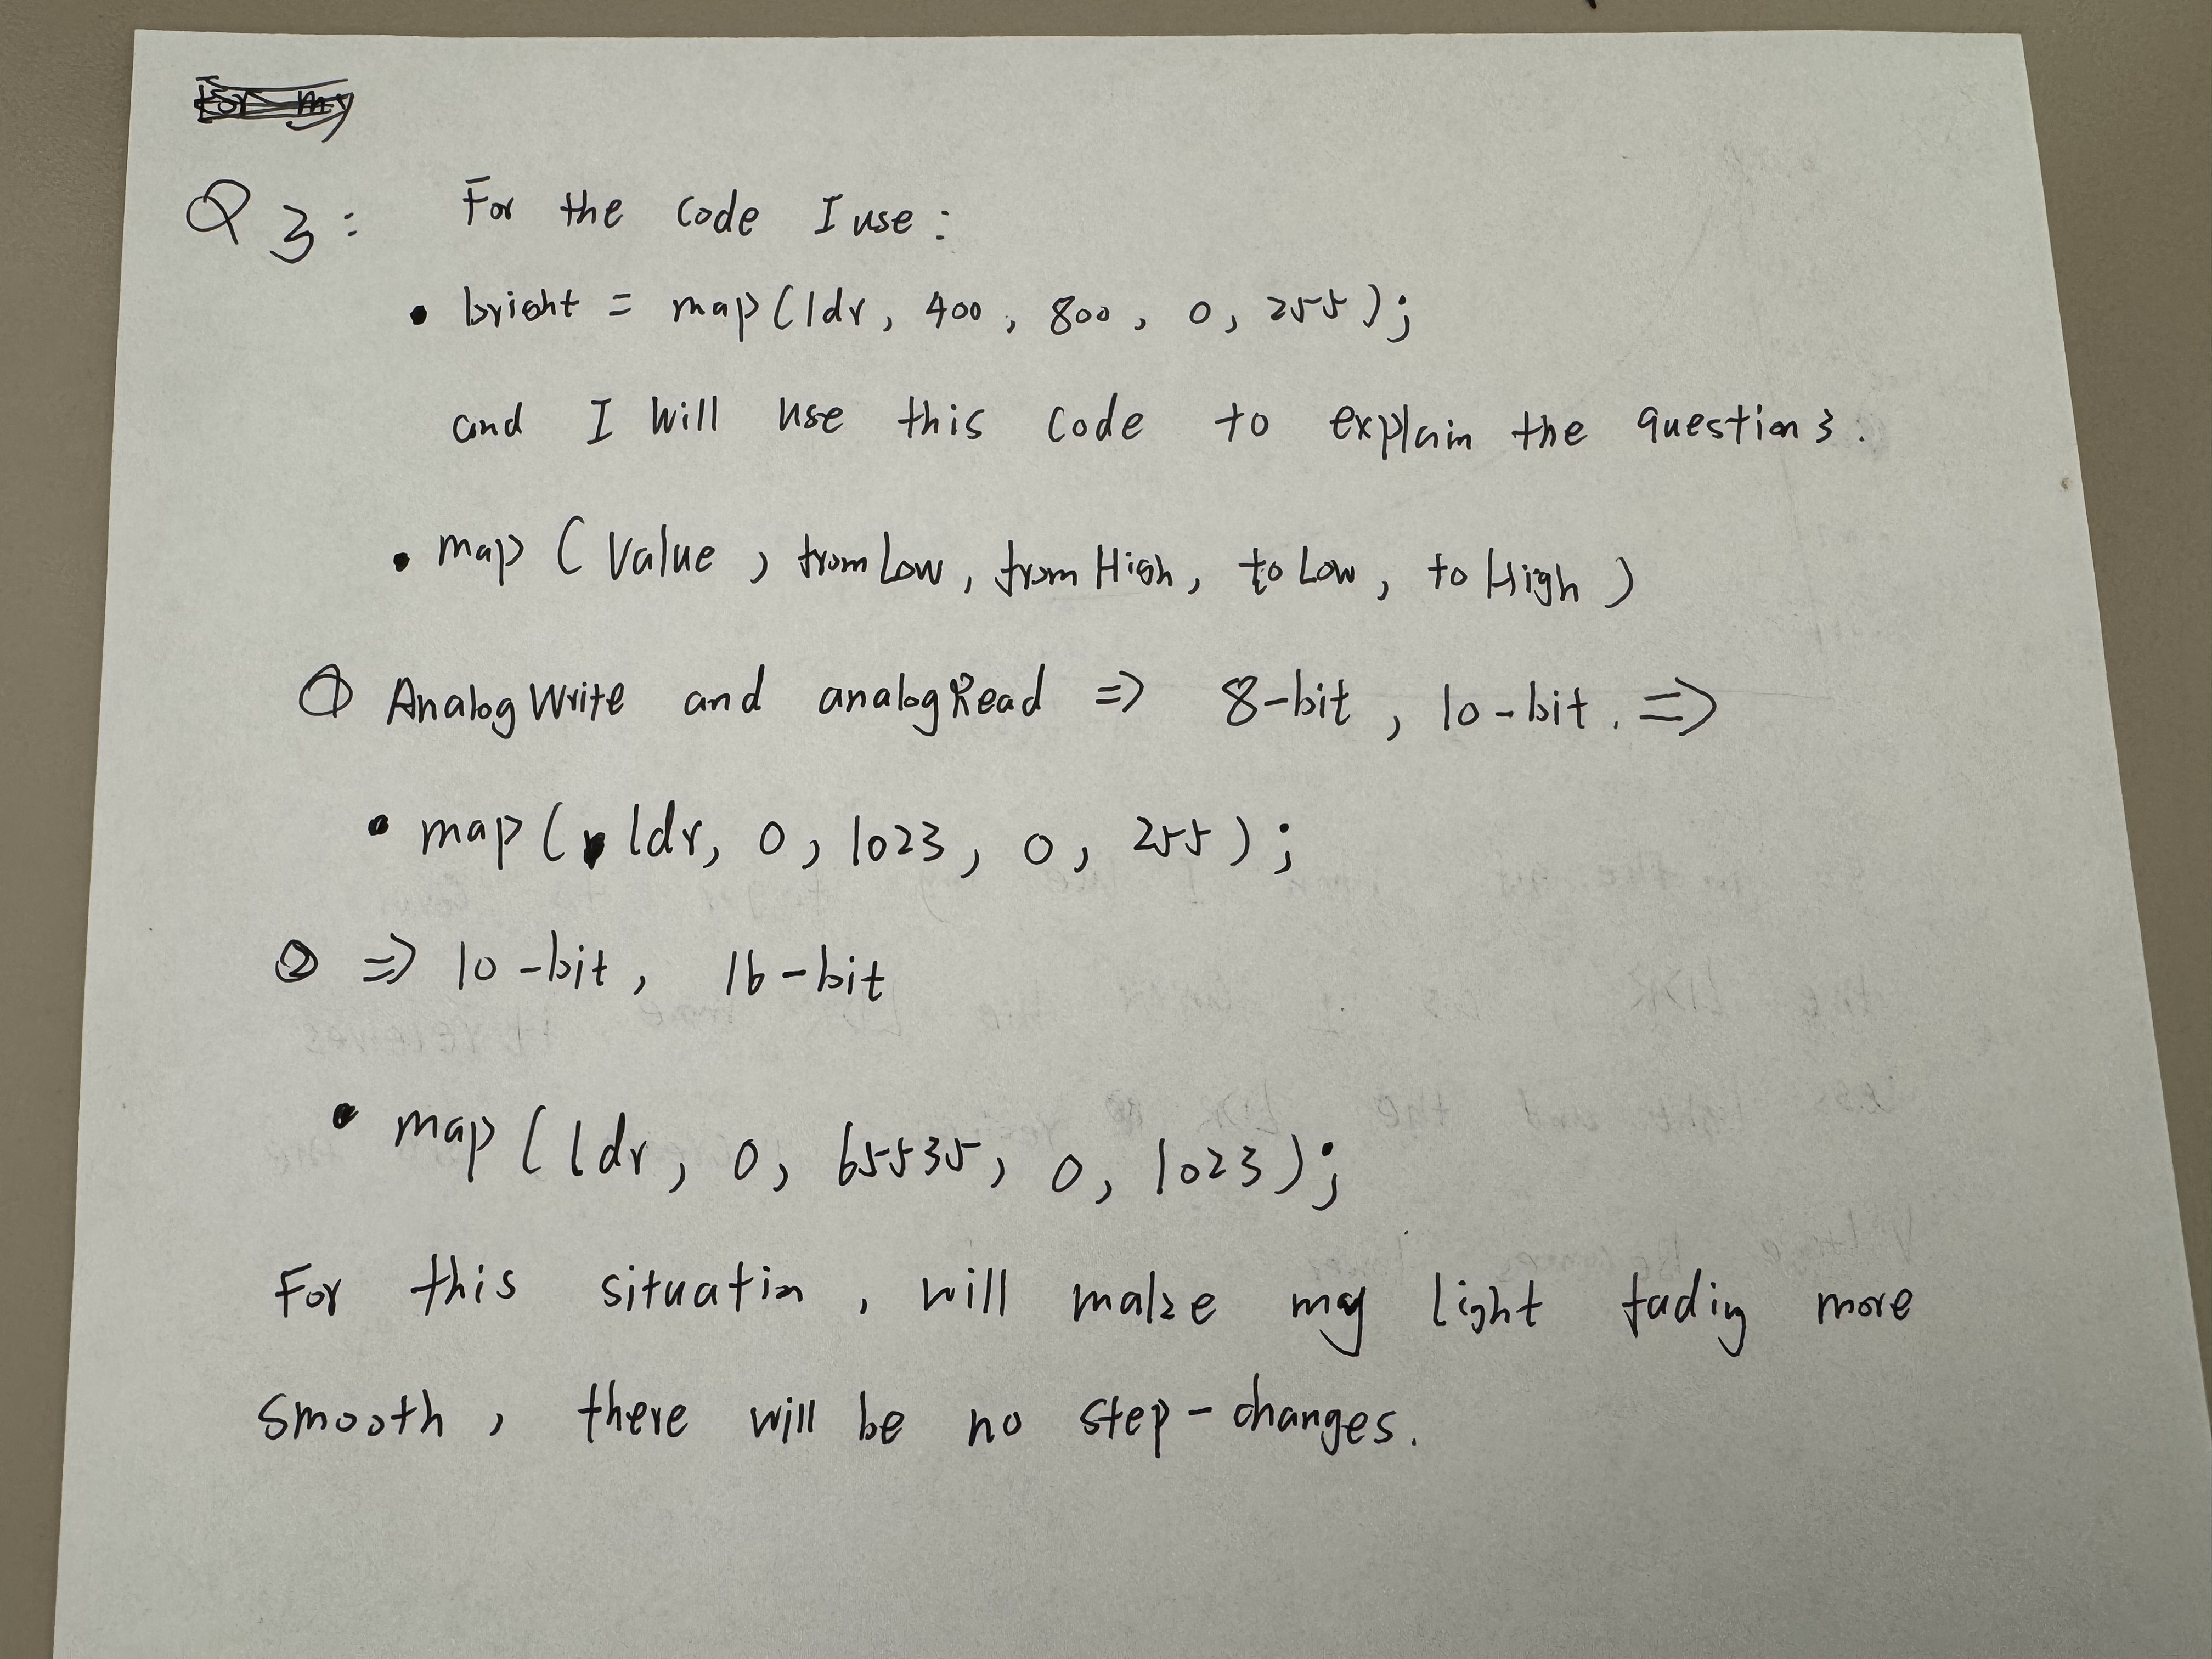 For my
Q3: For the code I use:
• bright = map(ldr, 400, 800, 0, 255);
and I will use this code to explain the question 3.
• map (Value, fromLow, fromHigh, toLow, toHigh)
① AnalogWrite and analogRead => 8-bit, 10-bit. =>
• map( ldr, 0, 1023, 0, 255);
② => 10-bit, 16-bit
• map(ldr, 0, 65535, 0, 1023);
For this situation, will make my light fading more
smooth, there will be no step-changes.